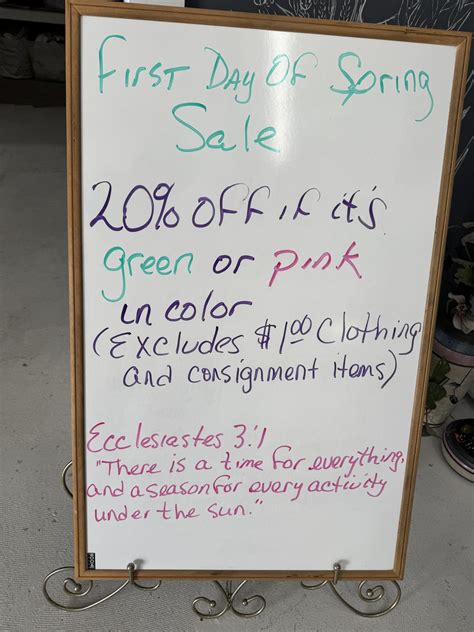 First Day Of Spring
Sale
20% off if it's
green or pink
in color
(Excludes $1.00 Clothing
and consignment items)
Ecclesiastes 3:1
"There is a time for everything,
and a season for every activity
under the sun."